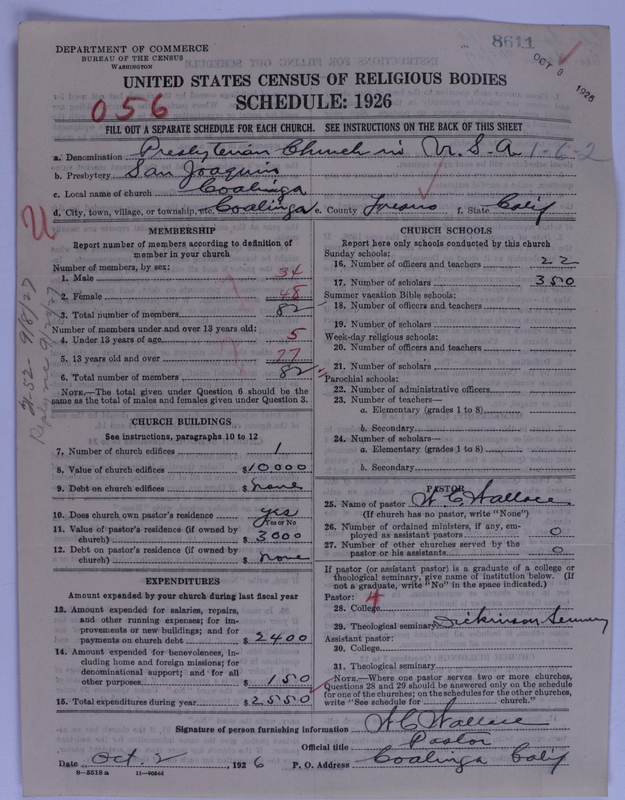 DEPARTMENT OF COMMERCE
BUREAU OF THE CENSUS
WASHINGTON
8611
OCT 8 1926
UNITED STATES CENSUS OF RELIGIOUS BODIES
SCHEDULE: 1926
056
FILL OUT A SEPARATE SCHEDULE FOR EACH CHURCH. SEE INSTRUCTIONS ON THE BACK OF THIS SHEET
a. Denomination Presbyterian Church in U.S.A 1-6-2
b. Presbytery San Joaquin
c. Local name of church Coalinga
d. City, town, village, or township, etc. Coalinga e. County Fresno f. State Calif
MEMBERSHIP
Report number of members according to definition of
member in your church
Number of members, by sex:
1. Male 34
2. Female 48
3. Total number of members 82
Number of members under and over 13 years old:
4. Under 13 years of age 5
5. 13 years old and over 77
6. Total number of members 82
NOTE.—The total given under Question 6 should be the
same as the total of males and females given under Question 3.
CHURCH BUILDINGS
See instructions, paragraphs 10 to 12
7. Number of church edifices 1
8. Value of church edifices $10000
9. Debt on church edifices $ none
10. Does church own pastor's residence yes
Yes or No
11. Value of pastor's residence (if owned by
church) $ 3000
12. Debt on pastor's residence (if owned by
church) $ none
EXPENDITURES
Amount expended by your church during last fiscal year
13. Amount expended for salaries, repairs,
and other running expenses; for im-
provements or new buildings; and for
payments on church debt $ 2400
14. Amount expended for benevolences, in-
cluding home and foreign missions; for
denominational support; and for all
other purposes $ 150
15. Total expenditures during year $ 2550
CHURCH SCHOOLS
Report here only schools conducted by this church
Sunday schools:
16. Number of officers and teachers 22
17. Number of scholars 350
Summer vacation Bible schools:
18. Number of officers and teachers
19. Number of scholars
Week-day religious schools:
20. Number of officers and teachers
21. Number of scholars
Parochial schools:
22. Number of administrative officers
23. Number of teachers—
a. Elementary (grades 1 to 8)
b. Secondary
24. Number of scholars—
a. Elementary (grades 1 to 8)
b. Secondary
PASTOR
25. Name of pastor W C Wallace
(If church has no pastor, write "None")
26. Number of ordained ministers, if any, em-
ployed as assistant pastors 0
27. Number of other churches served by the
pastor or his assistants 0
If pastor (or assistant pastor) is a graduate of a college or
theological seminary, give name of institution below. (If
not a graduate, write "No" in the space indicated.)
Pastor: 4
28. College
29. Theological seminary Dickinson Seminary
Assistant pastor:
30. College
31. Theological seminary
NOTE.—Where one pastor serves two or more churches,
Questions 28 and 29 should be answered only on the schedule
for one of the churches; on the schedules for the other churches,
write "See schedule for church."
Signature of person furnishing information W C Wallace
Official title Pastor
Date Oct. 2, 1926 P. O. Address Coalinga Calif
8—5518 a